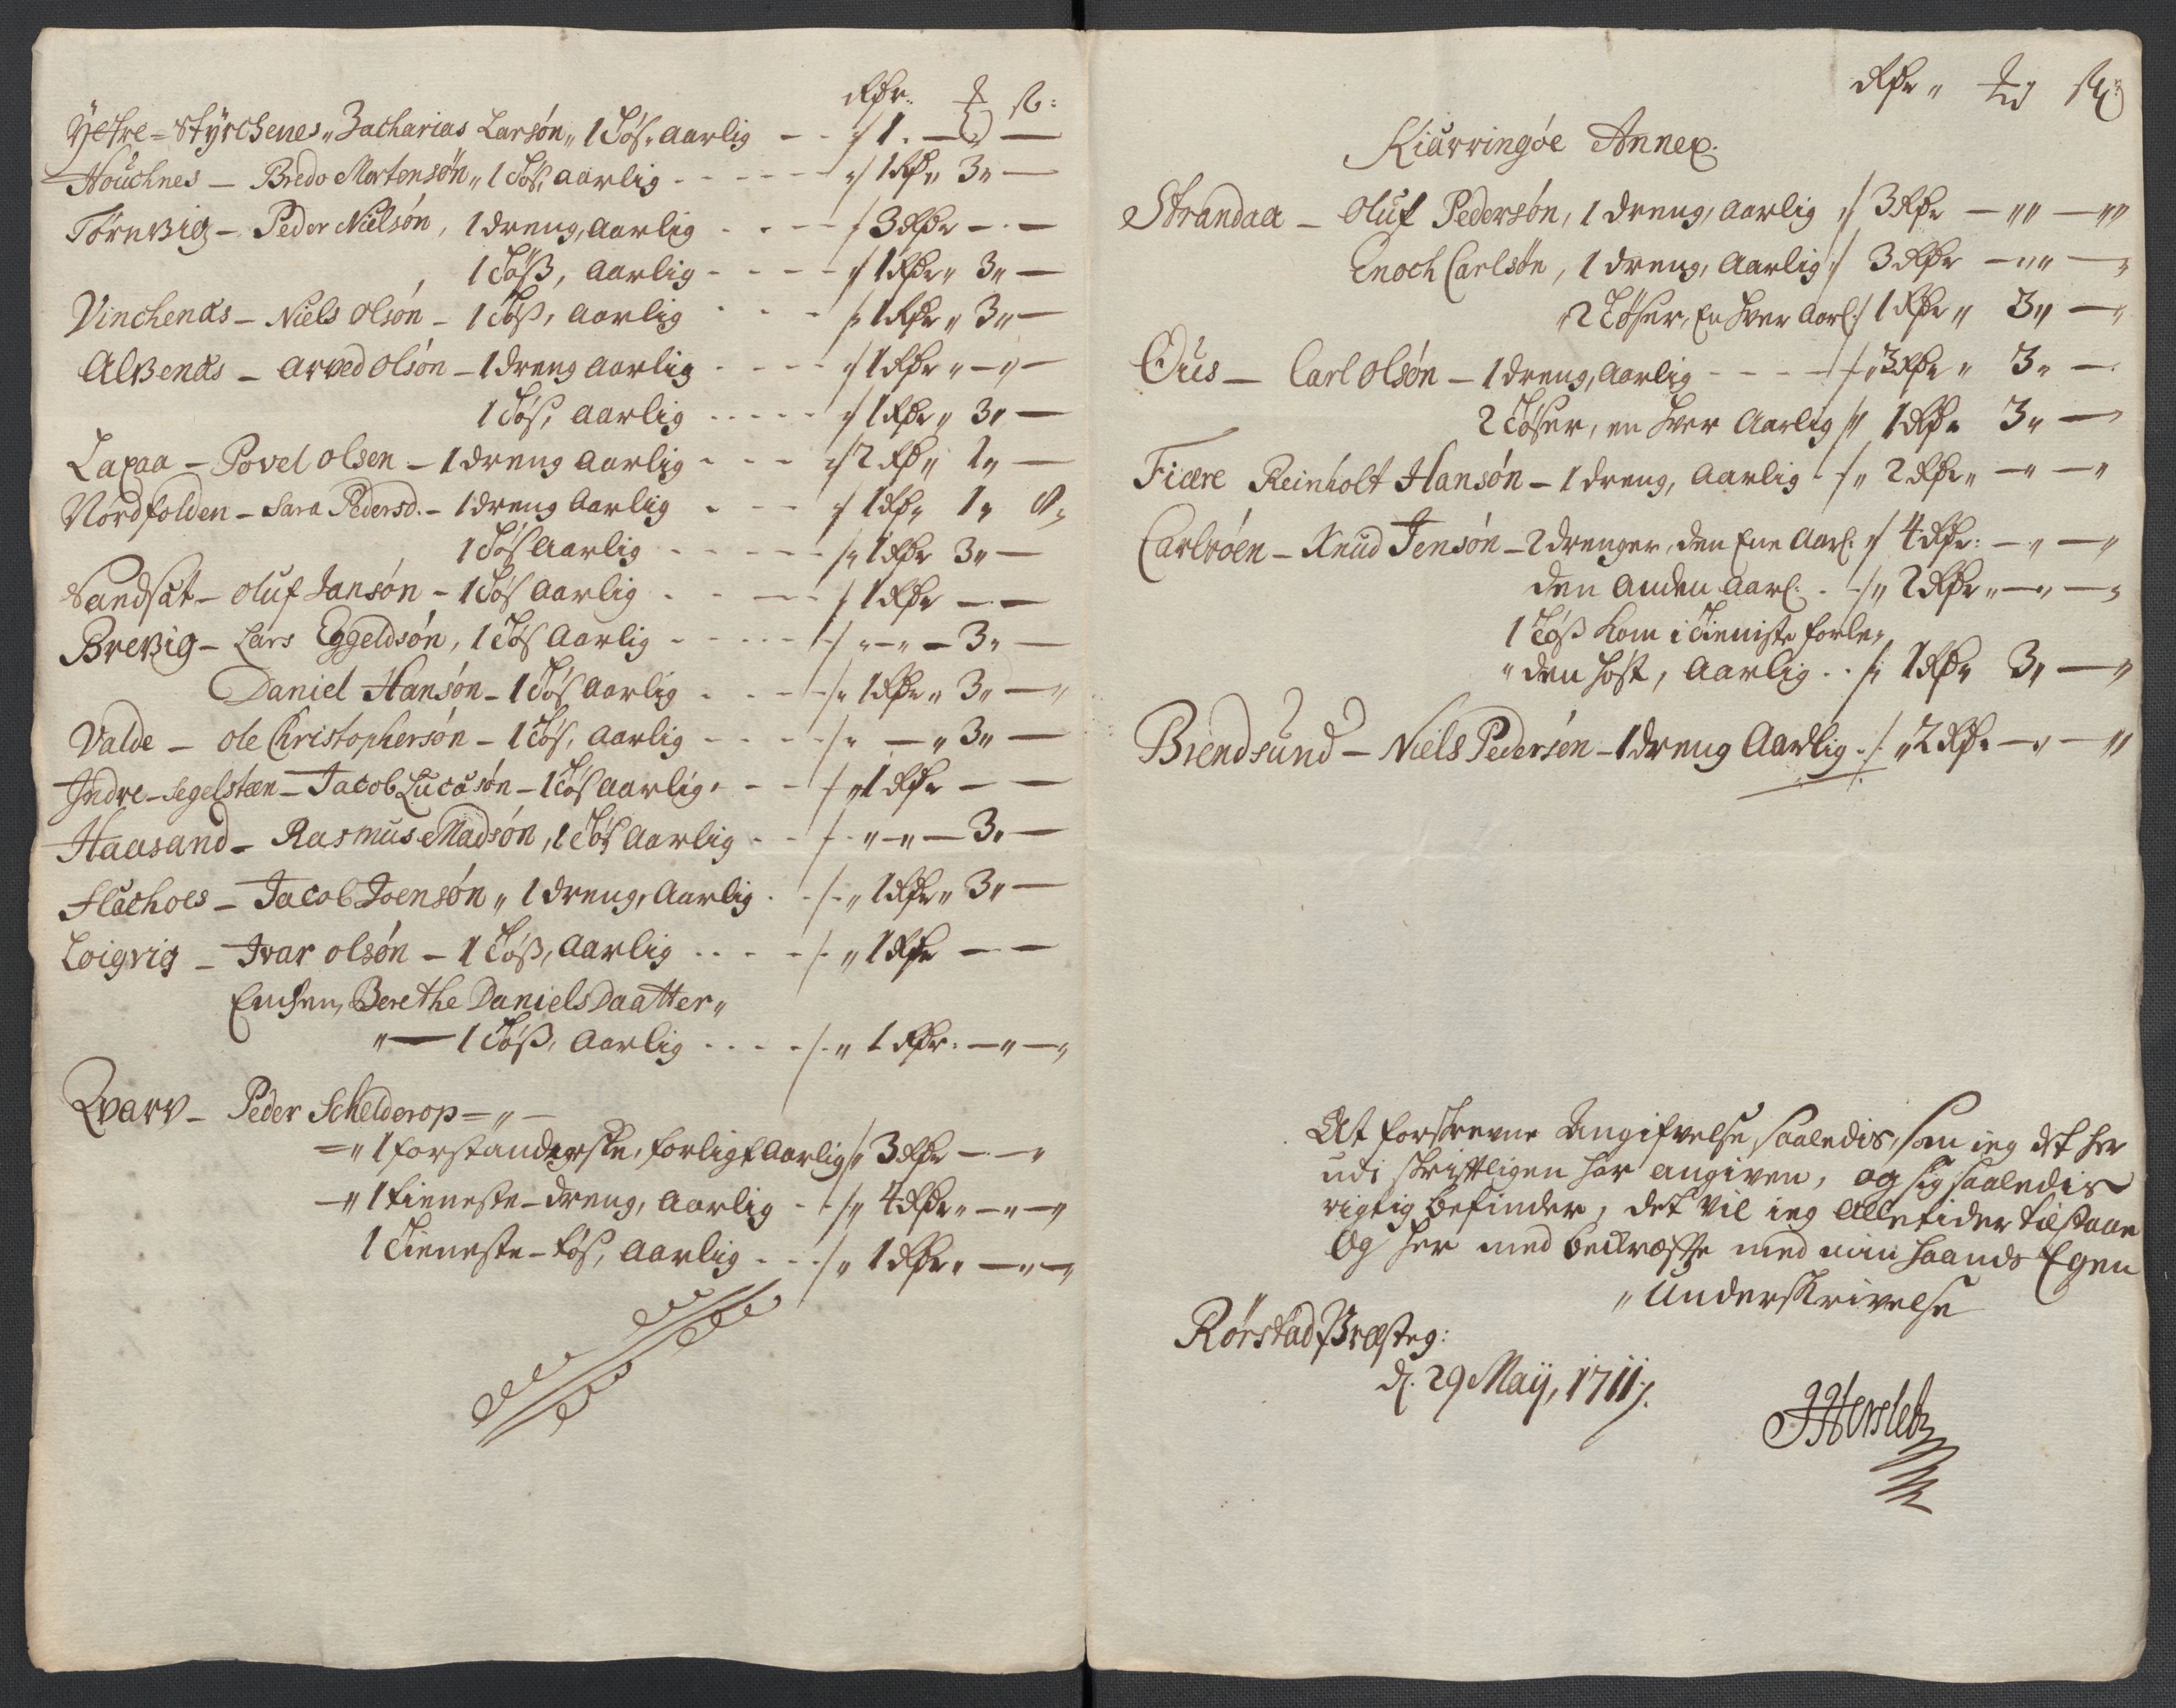 Rdr. ₰ ß:
Ÿetre = Stÿrchenes „ Zacharias Larsøn „ 1 Tøs, aarlig - - „/ 1. — —
Houchnes — Bredo Mortensøn „ 1 Tøs, aarlig - - - - - „/ 1 Rdr „ 3 „ —
Törnvig — Peder Nielsøn, 1 dreng, aarlig - - - / 3 Rdr — . —
1 Tøß, aarlig - - - - „/ 1 Rdr „ 3 „ —
Vinchenæs — Niels Olsøn — 1 Tøß, aarlig - - - /: 1 Rdr „ 3 „ —
Alvenæs — Arved Olsøn — 1 dreng aarlig - - - - „/ 1 Rdr „ — „ —
1 Tøs, aarlig - - - - - „/ 1 Rdr „ 3 „ —
Laxaa — Povel Olsen — 1 dreng aarlig - - - „/ 2 Rdr „ 1 „ —
Nordfolden — Sara Pedersd. — 1 dreng aarlig - - - „/ 1 Rdr „ 1 „ 8 „
1 Tøs aarlig - - - - - /„ 1 Rdr 3 „ —
Sandsæt — Oluf Jansøn — 1 Tøs aarlig - - - - / 1 Rdr — . —
Brevig — Lars Eggeldsøn, 1 Tøs aarlig - - - - - / „ — „ — 3 „ —
Daniel Hansøn — 1 Tøs aarlig - - - - /„ 1 Rdr „ 3 „ — „
Valde — Ole Christophersøn — 1 Tøs, aarlig - - - - /„ — „ 3 „ —
Indre - Segelsteen — Jacob Lucasøn — 1 Tøs aarlig, - - / „ 1 Rdr — —
Haasand — Rasmus Madsøn, 1 Tøs aarlig - - / - „ — „ — 3 „ —
Flachoes — Jacob Joensøn „ 1 dreng, aarlig . . / - „ 1 Rdr „ 3 „ —
Loigvig — Ivar Olsøn — 1 Tøß, aarlig . . . - / - „ 1 Rdr — —
Enchen, Berethe Danielsdaatter „
„ — 1 Tøß, aarlig . . . . / . „ 1 Rdr . — „ — „
Qvarv — Peder Schelderop = „ —
= „ 1 forstanderske, forligt aarlig /„ 3 Rdr — . — „
— „ 1 tieneste - dreng, aarlig - - /„ 4 Rdr „ — „ — „
1 Tieneste - tøs, aarlig . . . / „ 1 Rdr „ — „ — „
Rdr „ ₰ ß
Kiurringøe Annex.
Strandaa — Oluf Pedersøn, 1 dreng, aarlig „/ 3 Rdr — „ „ — „ „
Enoch Carlsøn, 1 dreng, aarlig „/ 3 Rdr — „ „ — „
„ 2 Tøser, En hver aarl: / 1 Rdr „ 3 „ — „
Øus — Carl Olsøn — 1 dreng, aarlig - - - - / „ 3 Rdr „ 3 „ —
2 Tøser, en hver Aarlig /„ 1 Rdr 3 „ —
Fiære Reinholt Hansøn — 1 dreng, aarlig - / „ 2 Rdr „ — „ — „
Carlsøen — Knud Jensøn — 2 drenger, den Ene aarl: „/ 4 Rdr: — „ — „
den anden aarl: . - / „ 2 Rdr „ — „ — „
1 Tøß kom i Tieniste forle„
„ den høst, aarlig . . /: 1 Rdr 3 „ — „
Brendsund — Niels Pedersøn — 1 dreng Aarlig . / . „ 2 Rdr — „ — „
At forskrevne Angifvelse, saaledis, som ieg det her
udi skriftligen har angiven, og sig saaledis
rigtig befinder, det vil ieg alletider tilstaae
Og her med bekræfte med min haands Egen
„ Underskrivelse
Rørstad Præsteg:
d. 29 Maij, 1711 /.
JHersleb